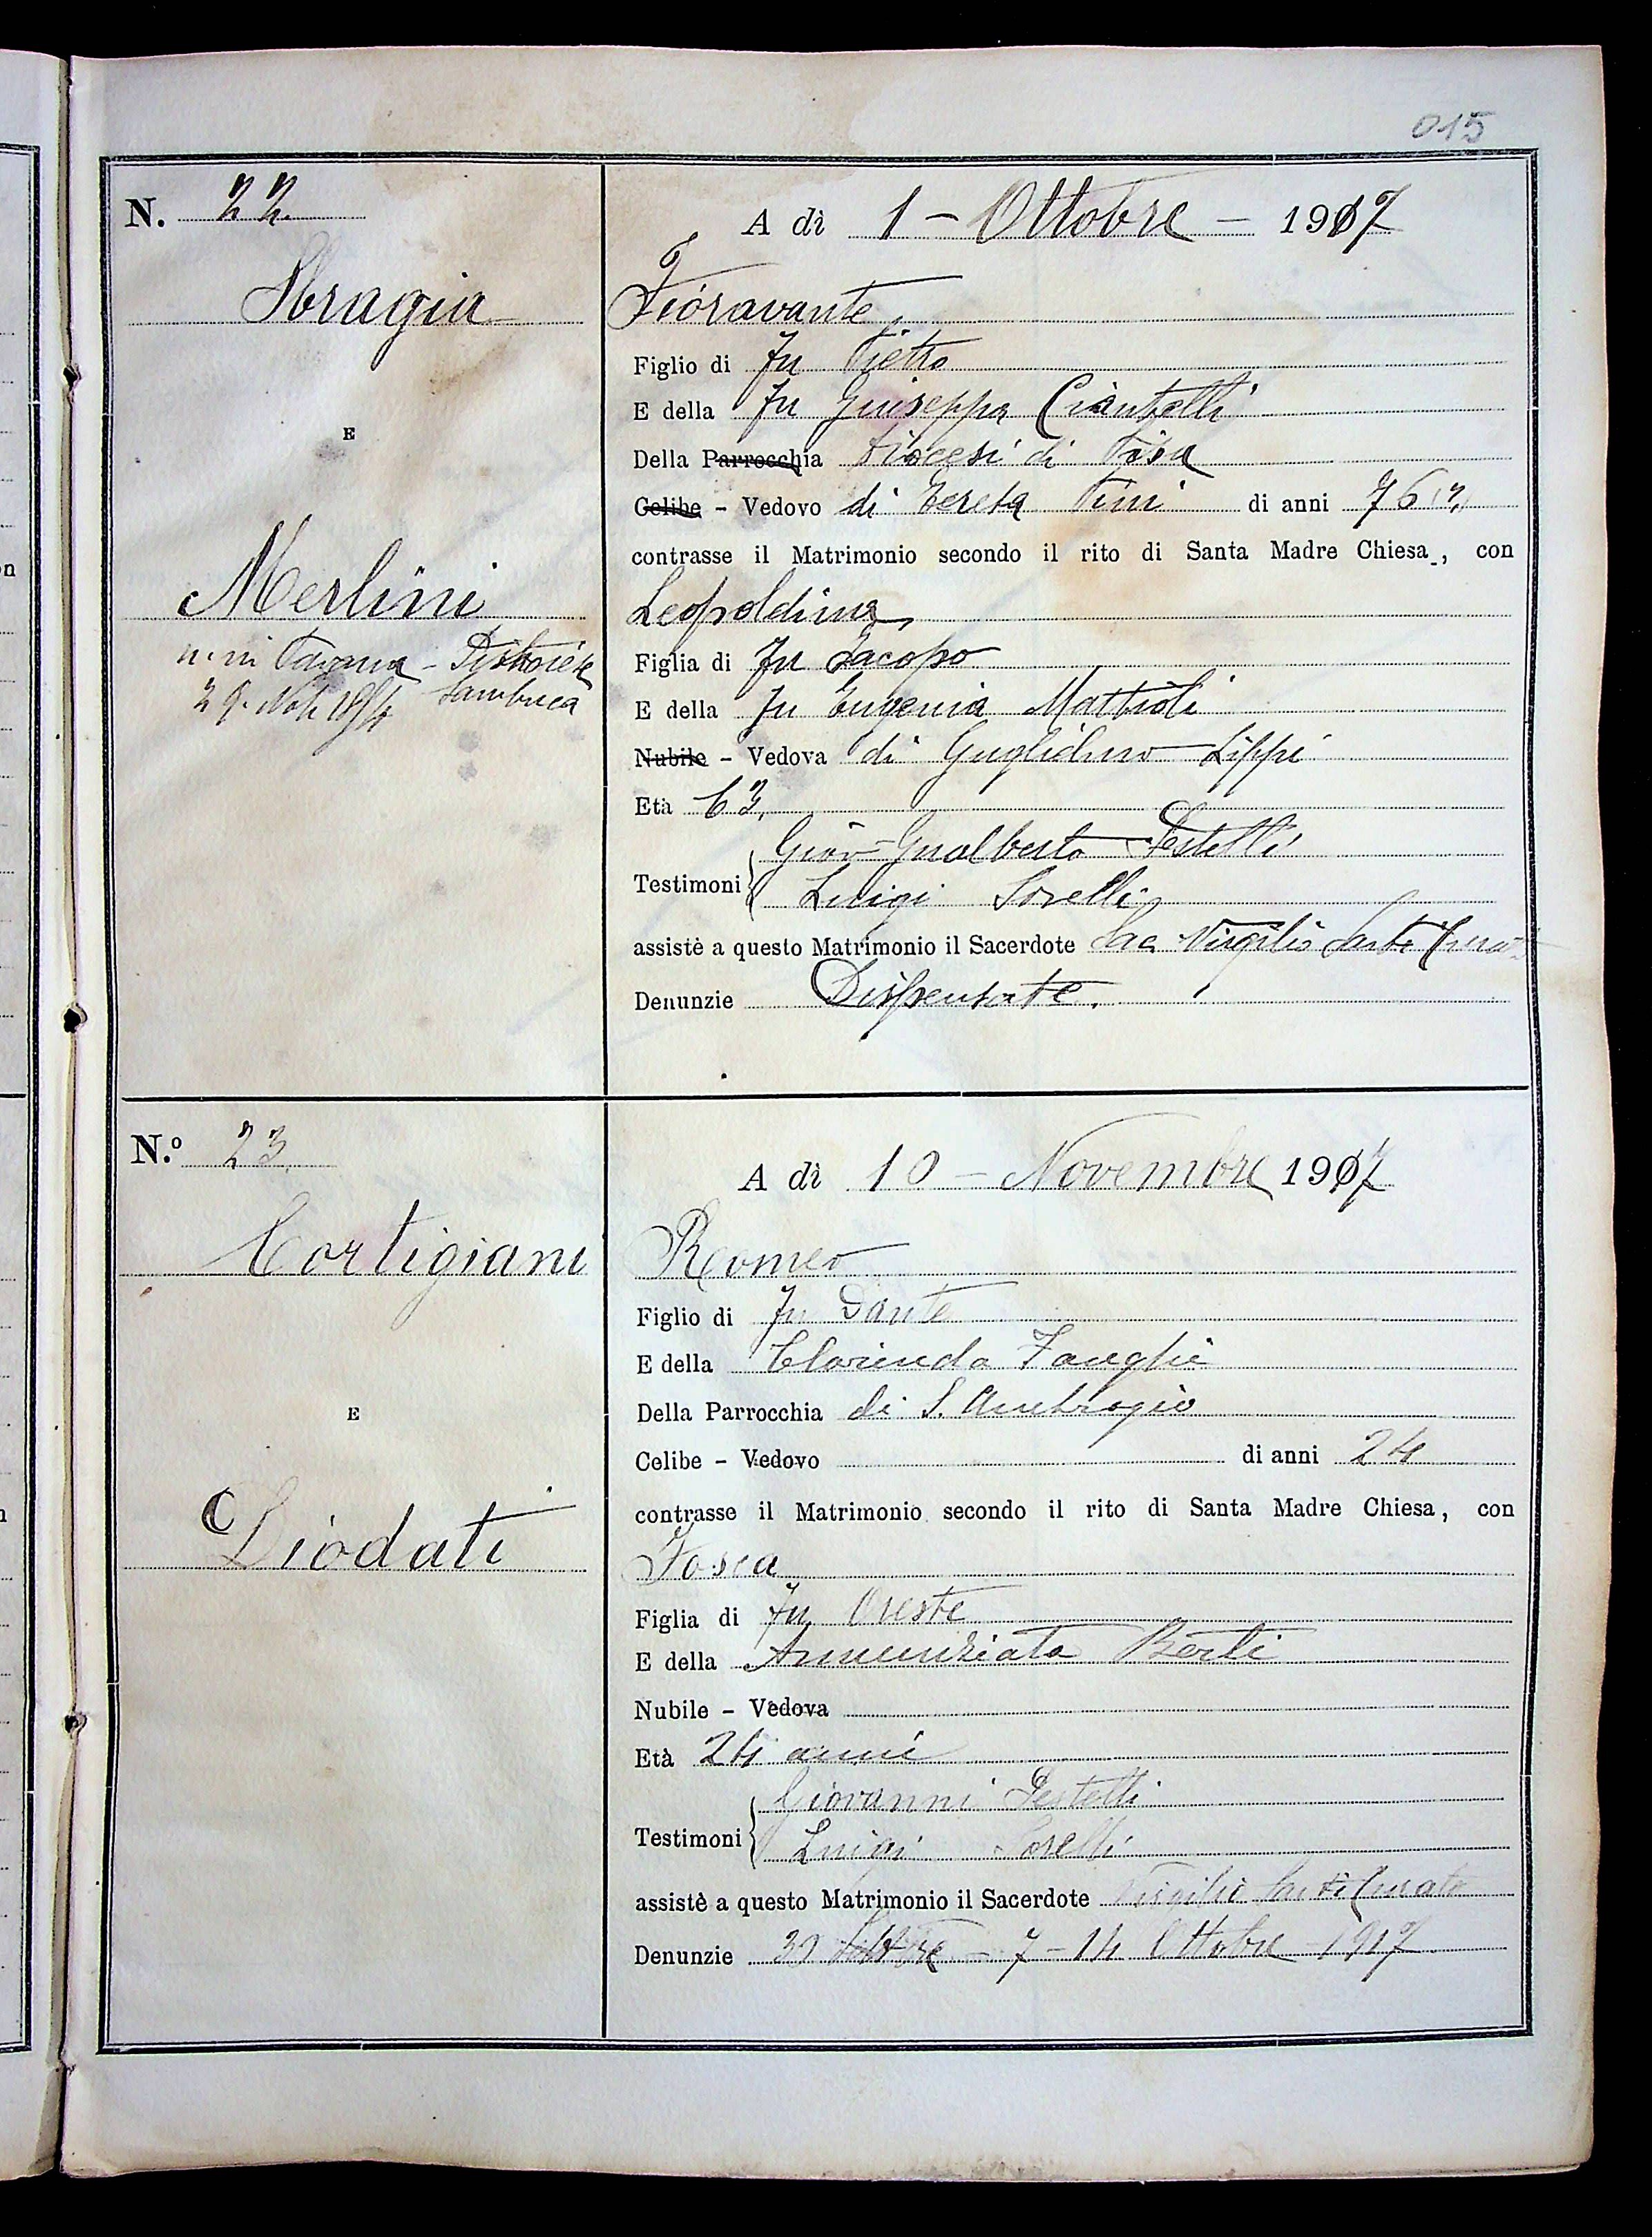 015
N. 22.
A dì 1 - Ottobre - 1917
Sbragia
Fioravante
Figlio di Fu Pietro
E della Fu Giuseppa Ciantelli
E
Della Parrocchia Diocesi di Pisa
Celibe - Vedovo di Teresa Pini di anni 76
contrasse il Matrimonio secondo il rito di Santa Madre Chiesa, con
Merlini
Leopoldina
n. in Pavana - Pistoiese
Sambuca
Figlia di Fu Jacopo
E della Fu Eugenia Mattioli
Nubile - Vedova di Guglielmo Lippi
Età 63,
Giov Gualberto Pestelli
Testimoni
Luigi Sorelli
assistè a questo Matrimonio il Sacerdote Sac Virgilio Santi Curato
Denunzie Dispensate.
N.º 23.
A dì 10 - Novembre 1917
Cortigiani
Romeo
Figlio di Fu Dante
E della Clorinda Fanghi
Della Parrocchia di S. Ambrogio
E
Celibe - Vedovo di anni 24
contrasse il Matrimonio secondo il rito di Santa Madre Chiesa, con
Diodati
Tosca
Figlia di Fu Oreste
E della Annunziata Berti
Nubile - Vedova
Età 24 anni
Giovanni Pestelli
Testimoni
Luigi Sorelli
assistè a questo Matrimonio il Sacerdote Virgilio Santi Curato
Denunzie 30 - 7 - 14 Ottobre 1917